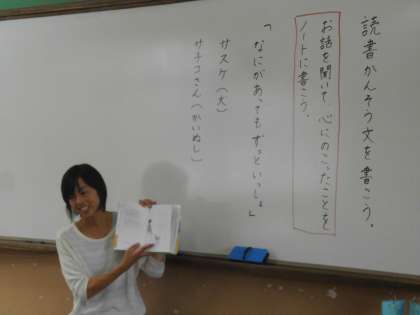 読書かんそう文を書こう。
お話を聞いて、心にのこったことを
ノートに書こう。
「なにがあってもずっといっしょ」
サスケ(犬)
サチコさん(かいぬし)